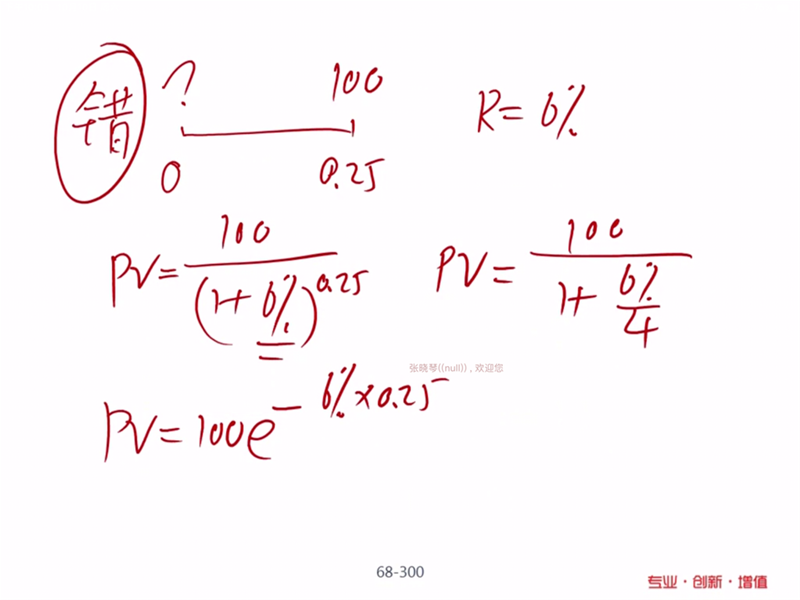 错 ? 100 R = 6%
0 0.25
PV = 100 / (1 + 6%)^0.25 PV = 100 / (1 + 6%/4)
张晓琴((null)) , 欢迎您
PV = 100e^(- 6% × 0.25)
68-300
专业 · 创新 · 增值